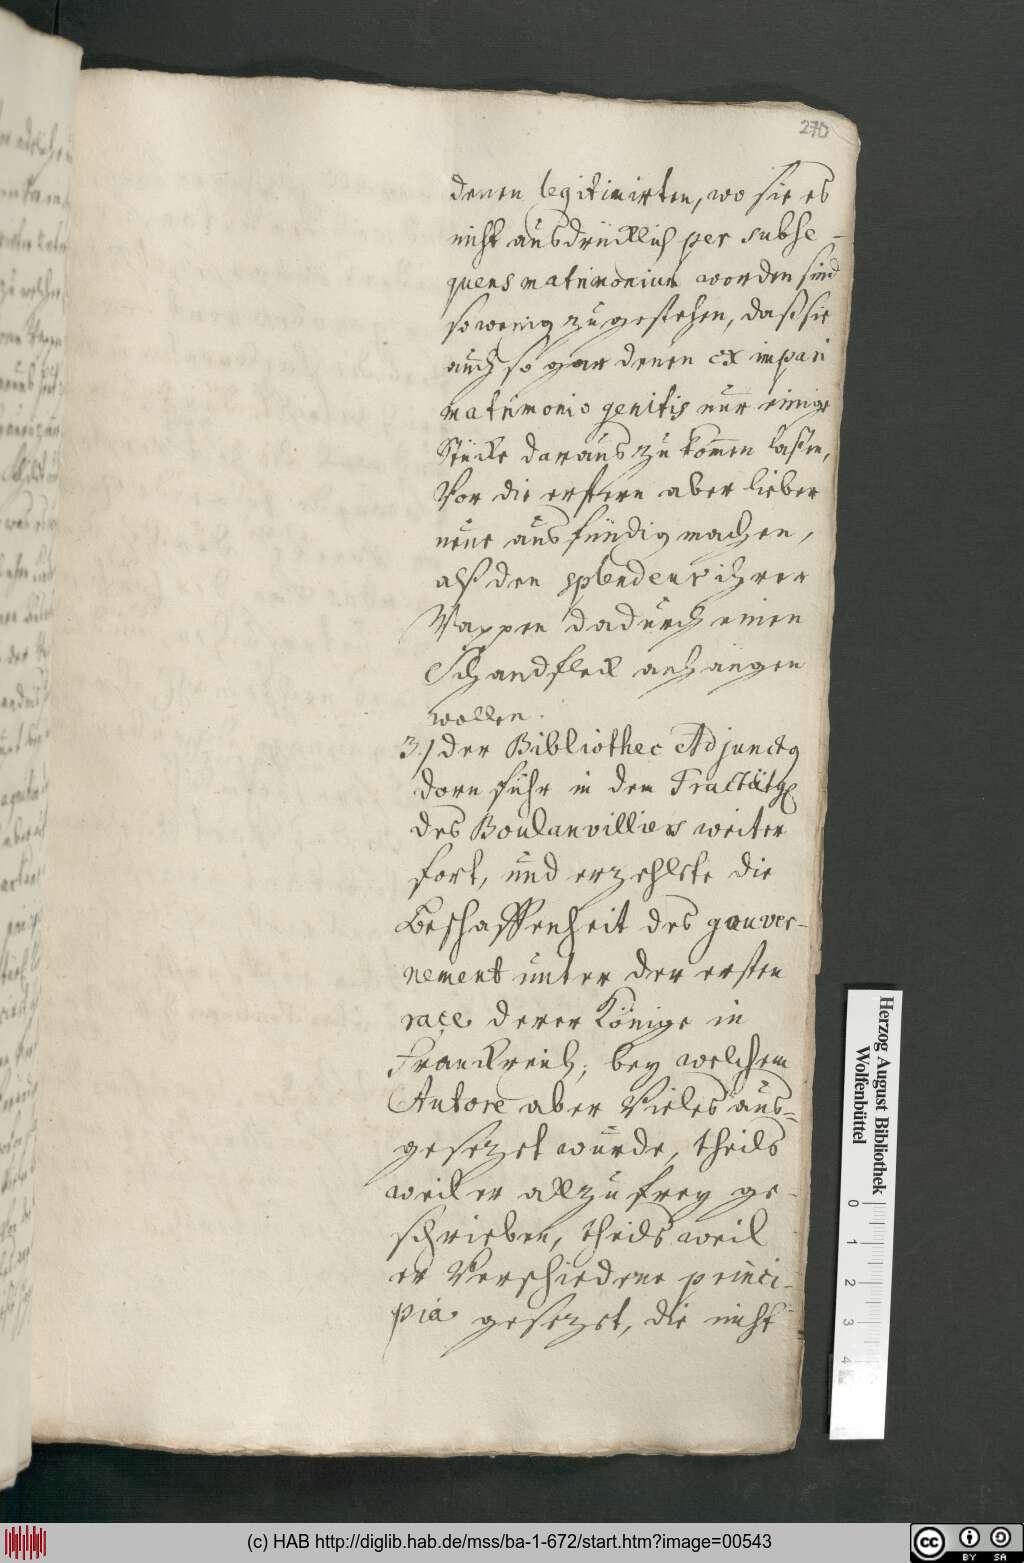 270
denen legitimirten, wo sie es
nicht ausdrücklich per subse-
quens matrimonium worden sind
so wenig zugestehen, daß sie
auch so gar denen ex impari
matrimonio genitis nur einige
Stücke daraus zu kom̅en laßen,
Vor die erstern aber lieber
neue ausfündig machen,
alß den splendeur ihrer
Wappen dadurch einen
Schandfleck anhängen
wollen.
3./ der Bibliothec Adjunctg
dorn fuhr in dem
des Boulanvilliers weiter
fort, und erzehlete die
Beschaffenheit des gouver-
nement unter der ersten
raçe derer Könige in
Franckreich, bey welchem
Autore aber Vieles aus-
gesezet wurde, theils
weil er allzu frey ge-
schrieben, theils weil
er Verschiedene princi-
pia gesezet, die nicht
Herzog August Bibliothek
Wolfenbüttel
0 1 2 3 4
(c) HAB http://diglib.hab.de/mss/ba-1-672/start.htm?image=00543
cc BY SA